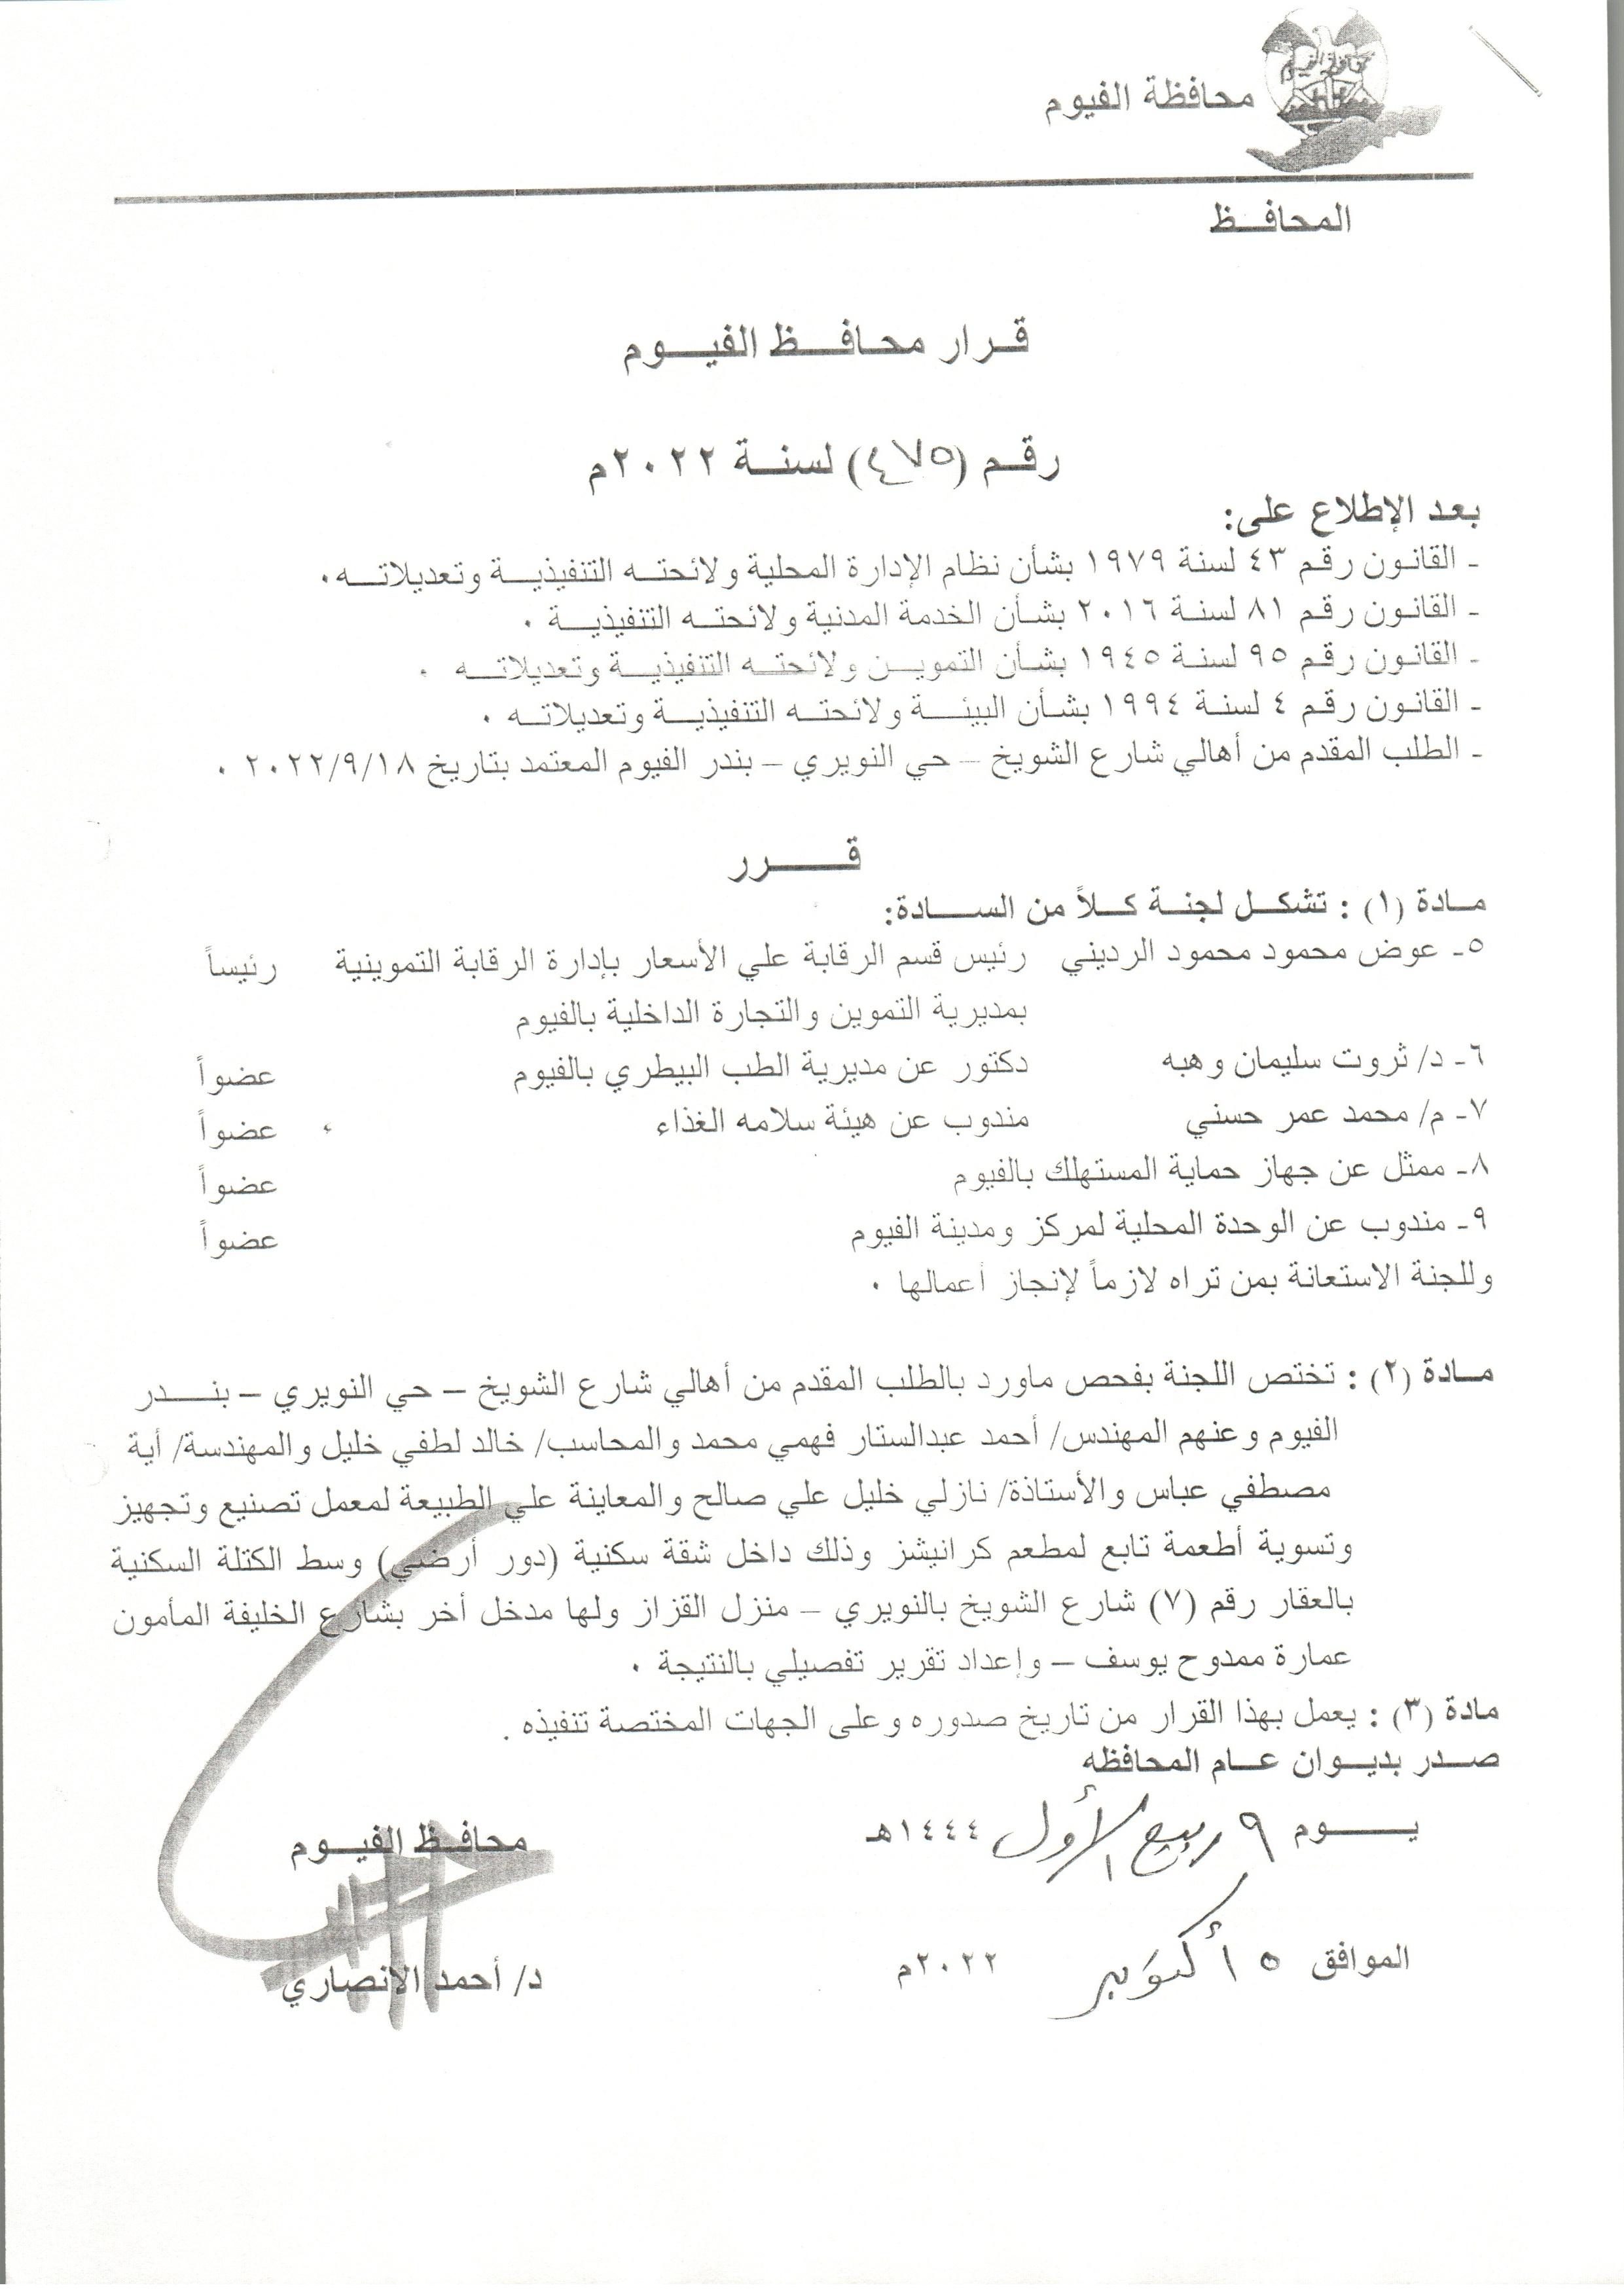 محافظة الفيوم
محافظة الفيوم
المحافـظ
قـرار محـافـــظ الفيـــوم
رقـم (٤٧٥) لسنـة ٢٠٢٢م
بعد الإطلاع على:
- القانـون رقـم ٤٣ لسنة ١٩٧٩ بشأن نظام الإدارة المحلية ولائحتـه التنفيذيـة وتعديلاتـه.
- القانـون رقـم ٨١ لسنـة ٢٠١٦ بشـأن الخدمة المدنية ولائحتـه التنفيذيـة .
- القانـون رقـم ٩٥ لسنـة ١٩٤٥ بشـأن التمويـن ولائحتـه التنفيذيـة وتعديلاتـه .
- القانـون رقـم ٤ لسنـة ١٩٩٤ بشـأن البيئـة ولائحتـه التنفيذيـة وتعديلاتـه .
- الطلب المقدم من أهالي شارع الشويخ – حي النويري – بندر الفيوم المعتمد بتاريخ ٢٠٢٢/٩/١٨ .
قــــرر
مـادة (١) : تشكـل لجنـة كـلاً من الســادة:
٥- عوض محمود محمود الرديني رئيس قسم الرقابة علي الأسعار بإدارة الرقابة التموينية رئيساً
بمديرية التموين والتجارة الداخلية بالفيوم
٦- د/ ثروت سليمان وهبه دكتور عن مديرية الطب البيطري بالفيوم عضواً
٧- م/ محمد عمر حسني مندوب عن هيئة سلامه الغذاء عضواً
٨- ممثل عن جهاز حماية المستهلك بالفيوم عضواً
٩- مندوب عن الوحدة المحلية لمركز ومدينة الفيوم عضواً
وللجنة الاستعانة بمن تراه لازماً لإنجاز أعمالها .
مـادة (٢) : تختص اللجنة بفحص ماورد بالطلب المقدم من أهالي شارع الشويخ – حي النويري – بنـدر
الفيوم وعنهم المهندس/ أحمد عبدالستار فهمي محمد والمحاسب/ خالد لطفي خليل والمهندسة/ أية
مصطفي عباس والأستاذة/ نازلي خليل علي صالح والمعاينة علي الطبيعة لمعمل تصنيع وتجهيز
وتسوية أطعمة تابع لمطعم كرانيشز وذلك داخل شقة سكنية (دور أرضي) وسط الكتلة السكنية
بالعقار رقم (٧) شارع الشويخ بالنويري – منزل القزاز ولها مدخل أخر بشارع الخليفة المأمون
عمارة ممدوح يوسف – وإعداد تقرير تفصيلي بالنتيجة .
مادة (٣) : يعمل بهذا القرار من تاريخ صدوره وعلى الجهات المختصة تنفيذه .
صـدر بديـوان عـام المحافظه
يـــوم ٩ ربيع الأول ١٤٤٤هـ
محافـظ الفيـوم
الموافق ٥ أكتوبر ٢٠٢٢م
د/ أحمد الانصاري